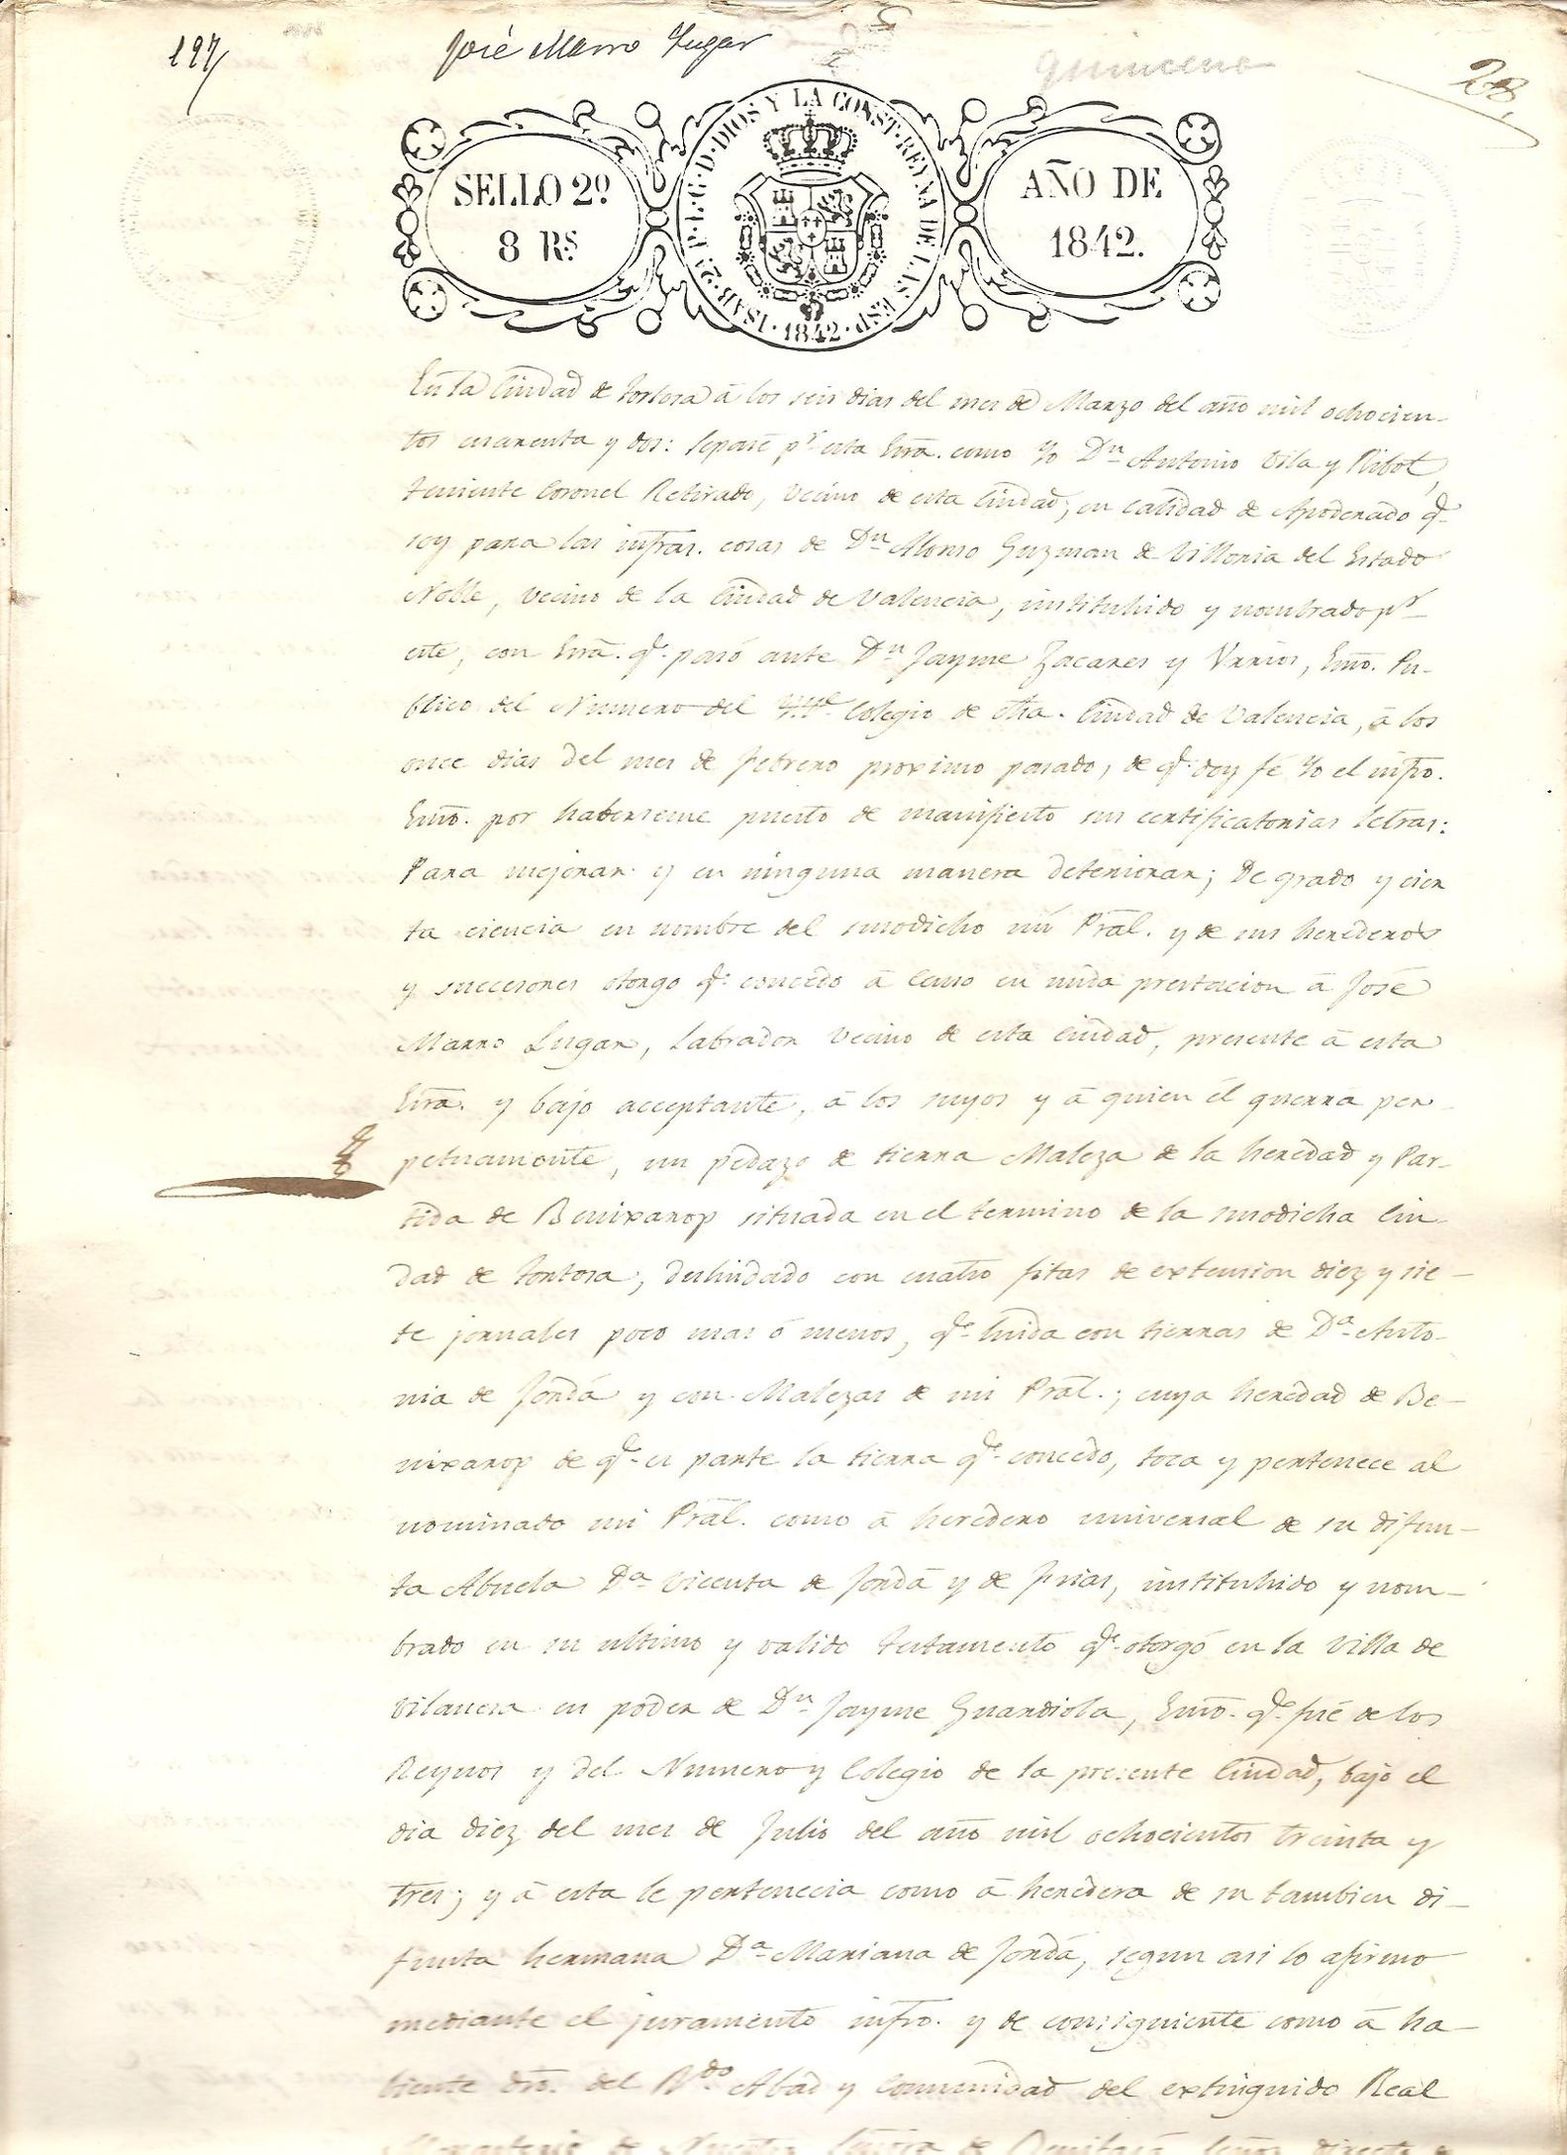 197
José Marro Lugar
28
SELLO 2º
8 Rs
ISAB. 2ª P. L. G. D. DIOS Y LA CONST. REYNA DE LAS ESP. 1842
AÑO DE
1842.
En la Ciudad de Tortosa â los seis dias del mes de Marzo del año mil ochocien-
tos cuarenta y dos: Sepase pr esta Esra. como Yo Dn Antonio Vila y Ribot,
teniente Coronel Retirado, vecino de esta Ciudad, en calidad de Apoderado q.e
soy para las infras. cosas de Dn Alonso Guzman de Villoria del Estado
Noble, vecino de la Ciudad de Valencia, instituhido y nombrado pr
este, con Esra. q.e pasó ante Dn Jayme Zacares y Urrios, Esno. Pu-
blico del Numero del Colegio de dha. Ciudad de Valencia, â los
once dias del mes de Febrero proximo pasado, de q.e doy fé Yo el infro.
Esno. por haberseme puesto de manifiesto sus certificatorias letras:
Para mejorar y en ninguna manera deteriorar; De grado y cier
ta ciencia en nombre del susodicho mi Pral. y de sus herederos
y succesores otorgo q.e concedo â Censo en nuda prestacion â José
Marro Lugar, Labrador vecino de esta Ciudad, presente â esta
Esra. y bajo acceptante, â los suyos y â quien él querrá per
petuamente, un pedazo de tierra Maleza de la heredad y Par-
tida de Benixarop situada en el termino de la susodicha Ciu-
dad de Tortosa, deslindado con cuatro fitas de extension diez y sie-
te jornales poco mas ó menos, q.e linda con tierras de Da Anto-
nia de Jordá y con Malezas de mi Pral.; cuya heredad de Be-
nixarop de q.e es parte la tierra q.e concedo, toca y pertenece al
nominado mi Pral. como â heredero universal de su difun-
ta Abuela Da Vicenta de Jordá y de Frias, instituhido y nom-
brado en su ultimo y valido testamento q.e otorgó en la Villa de
Vilanera en poder de Dn Jayme Guardiola, Esno. q.e fué de los
Reynos y del Numero y Colegio de la presente Ciudad, bajo el
dia diez del mes de Julio del año mil ochocientos treinta y
tres; y â esta le pertenecia como â heredera de su tambien di-
funta hermana Da Mariana de Jordá, segun asi lo afirmo
mediante el juramento infro. y de consiguiente como â ha-
biente dro. del Rdo Abad y Comunidad del extinguido Real
Monasterio de Nuestra Señora de Benifasá Señor directo